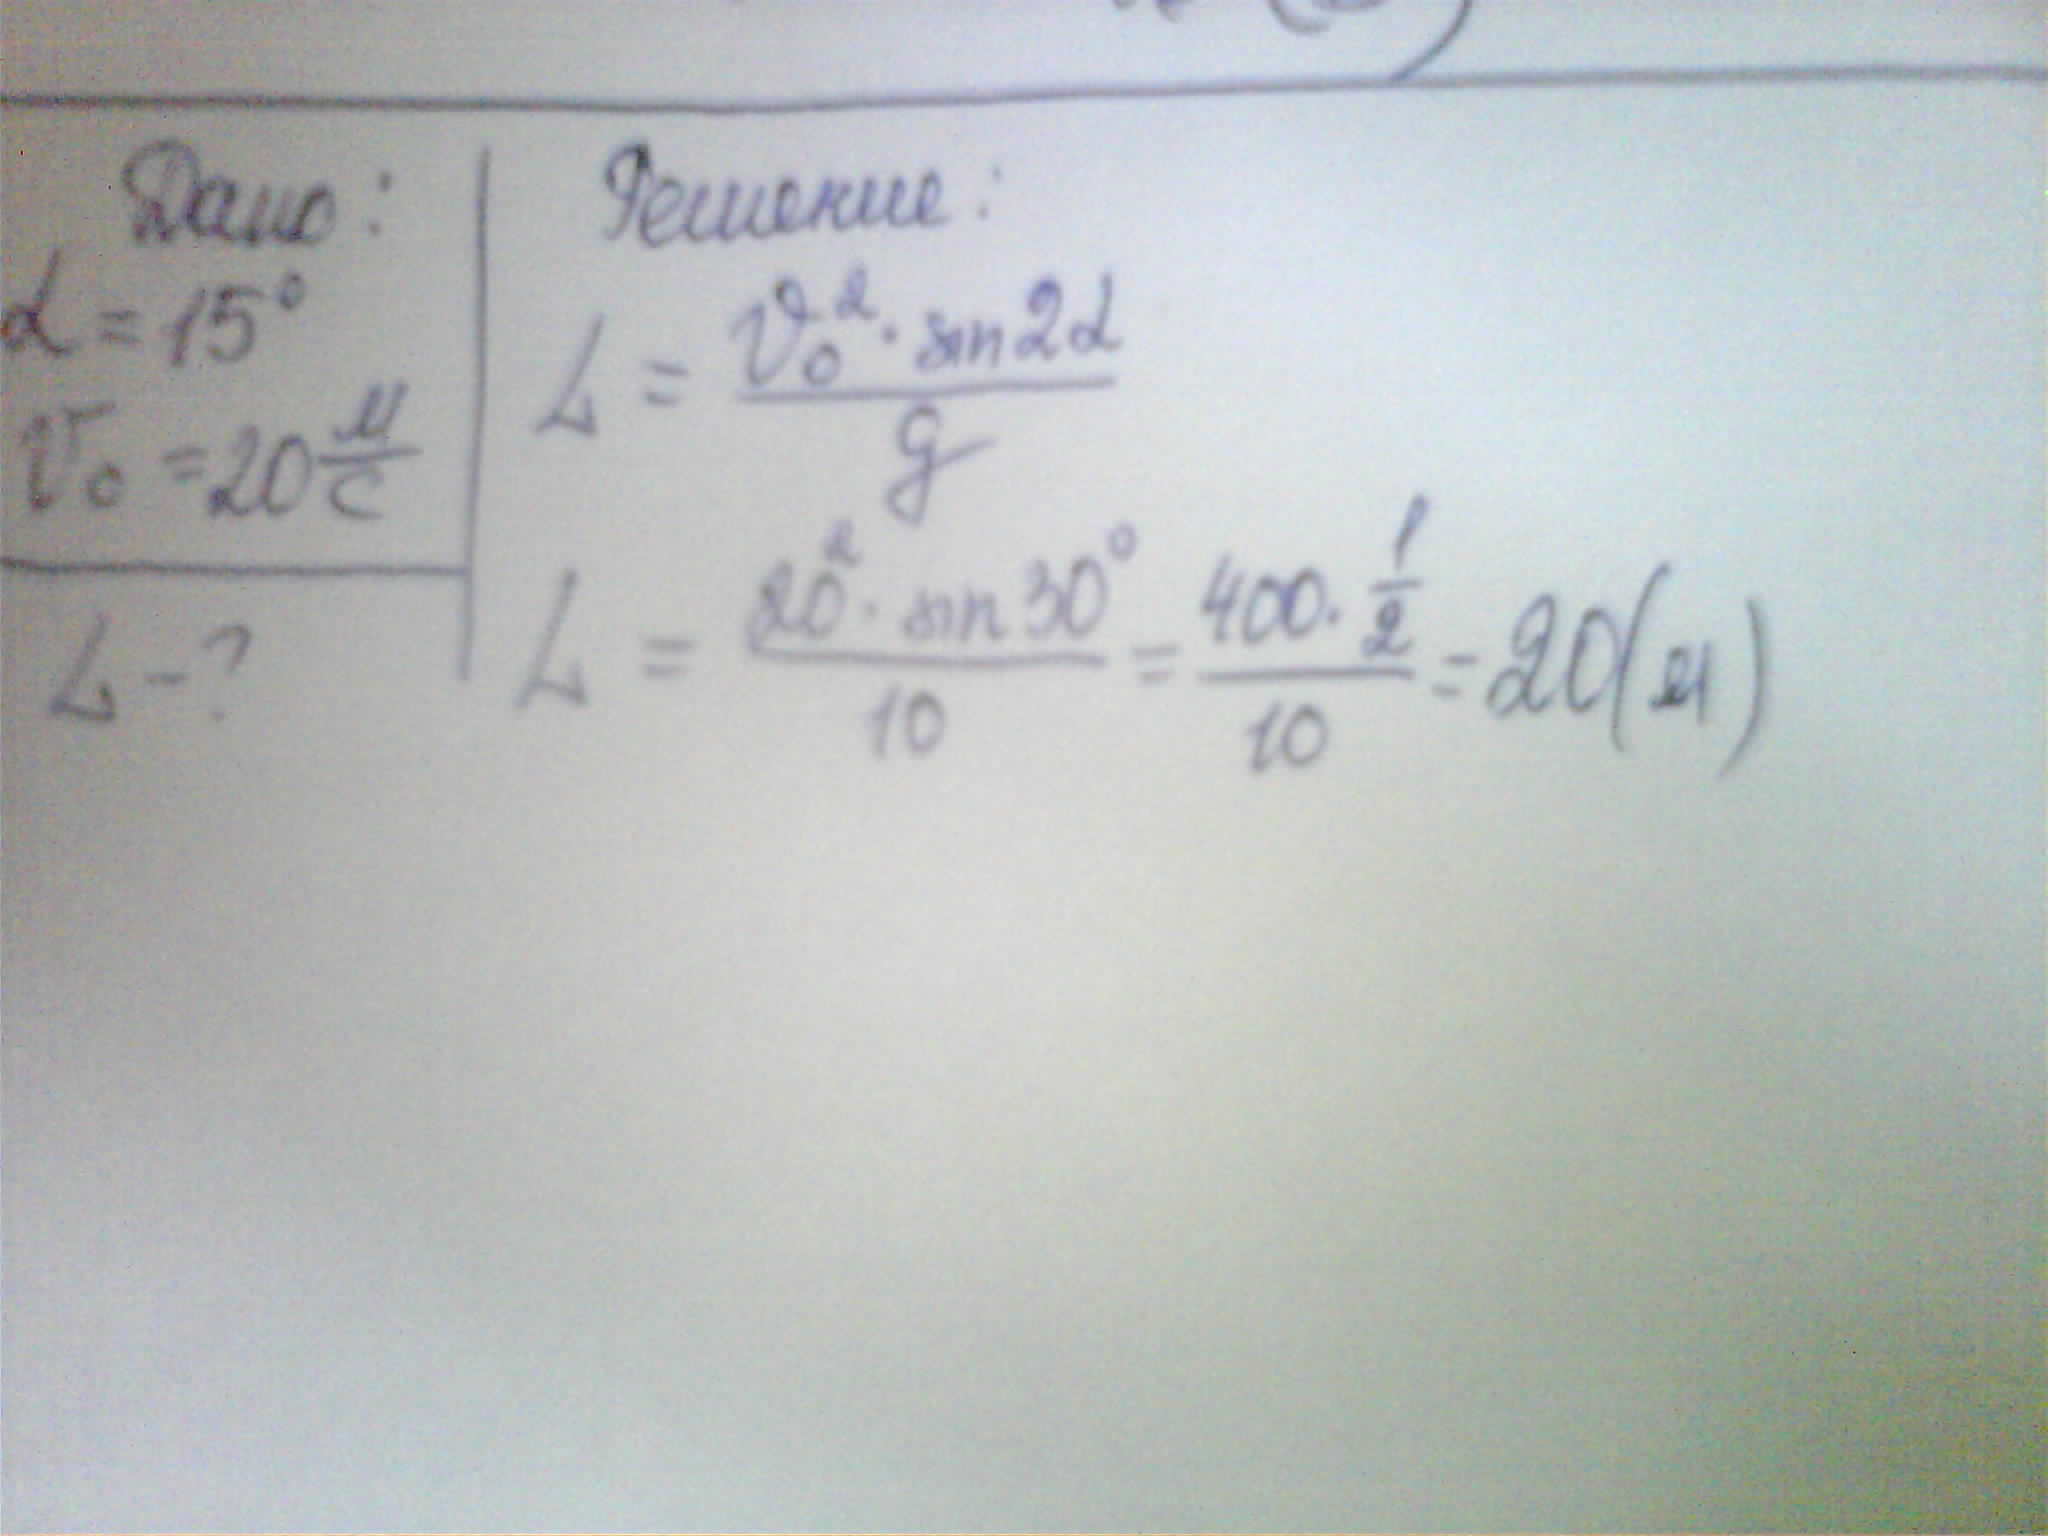 Дано:
α = 15°
V₀ = 20 м/с
L - ?
Решение:
L = V₀² · sin2α / g
L = 20² · sin30° / 10 = 400 · 1/2 / 10 = 20 (м)